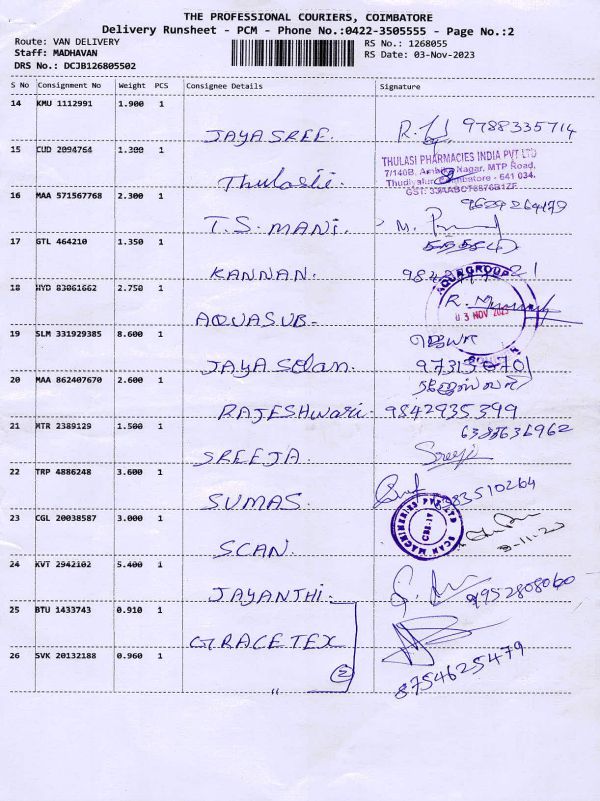 THE PROFESSIONAL COURIERS, COIMBATORE
Delivery Runsheet - PCM - Phone No.:0422-3505555 - Page No.:2
Route: VAN DELIVERY RS No.: 1268055
Staff: MADHAVAN RS Date: 03-Nov-2023
DRS No.: DCJB126805502
S No Consignment No Weight PCS Consignee Details Signature
14 KMU 1112991 1.900 1
JAYA SREE. 9788335714
15 CUD 2094764 1.300 1
THULASI PHARMACIES INDIA PVT LTD
7/140B, Nagar, MTP Road,
Thudiyalur, Coimbatore - 641 034.
Thulasii.
16 MAA 571567768 2.300 1
T.S. MANI. M.
17 GTL 464210 1.350 1
KANNAN.
18 HYD 83061662 2.750 1
AQUAGROUP
03 NOV 2023
AQUASUB-
19 SLM 331929385 8.600 1
JAYA Selan.
20 MAA 862407670 2.600 1
RAJESHwari- 9842935399
21 MTR 2389129 1.500 1 6388636962
SREEJA. Sreeji
22 TRP 4886248 3.600 1
SUMAS.
23 CGL 20038587 3.000 1
SCAN MACHINERIES PVT LTD
CBE-17
SCAN. 3-11-23
24 KVT 2942102 5.400 1
JAYANTHI. 9952808060
25 BTU 1433743 0.910 1
GRACETEX
26 SVK 20132188 0.960 1
2
〃 8754625479